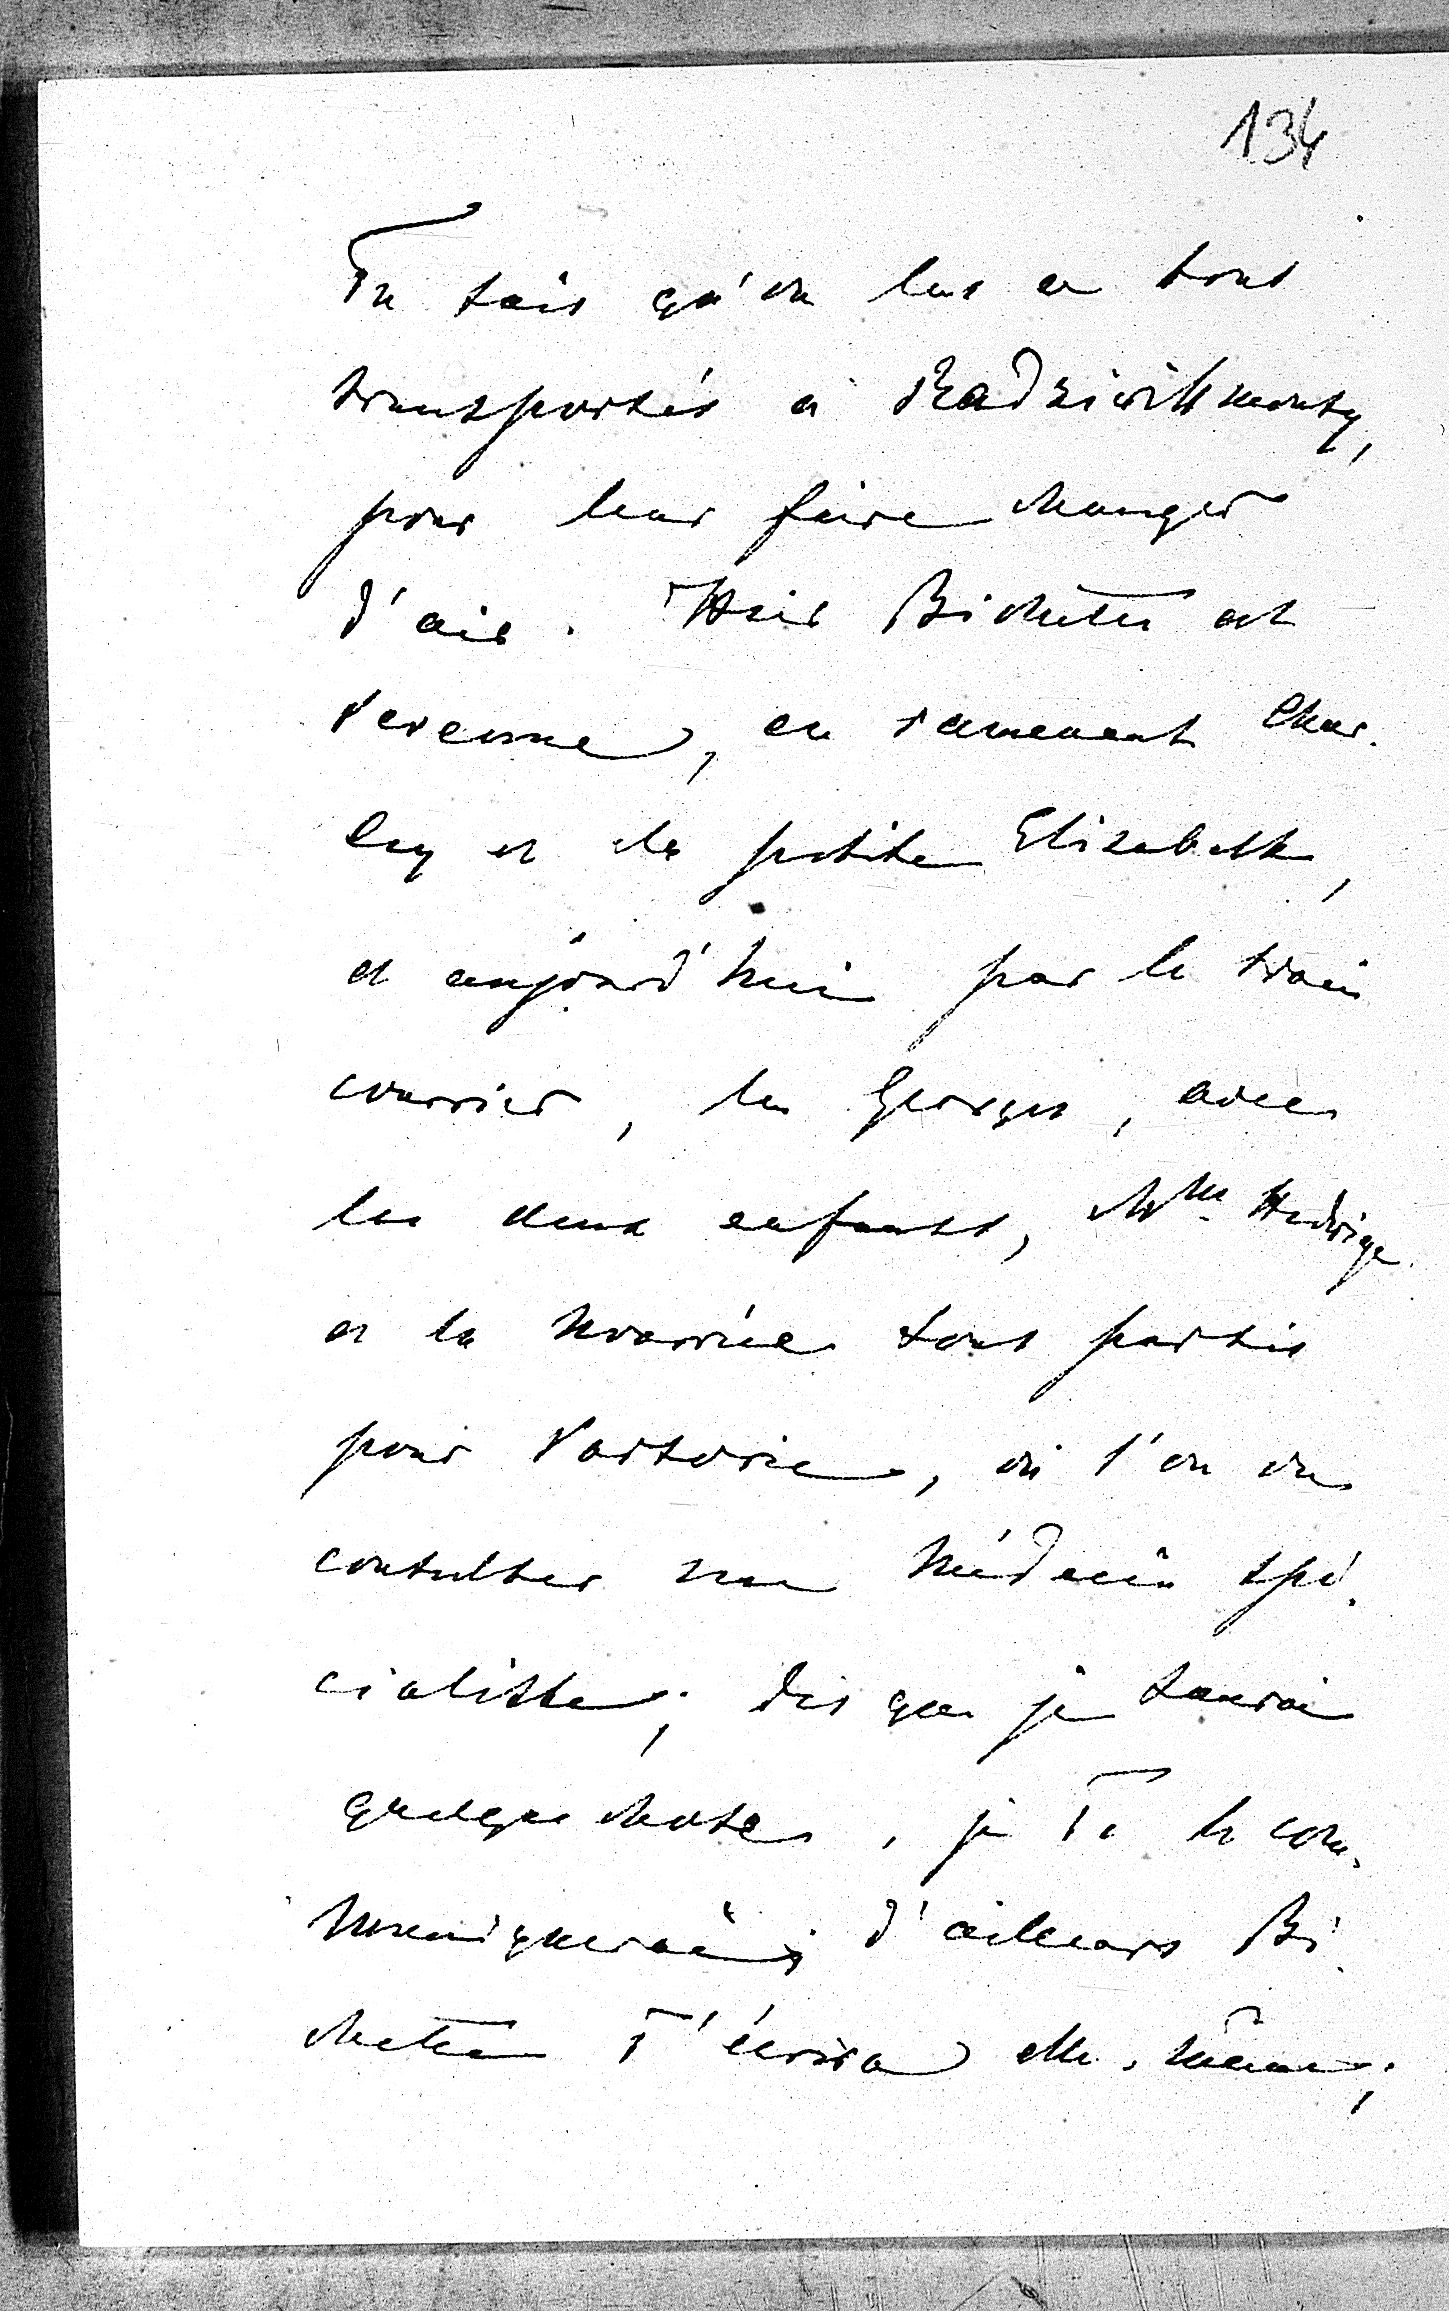 134
Tu sais qu'on les a tous
transportés à Radziwillmonty,
pour leur faire changer
d'air. Hier Bichette est
revenue, en ramenant Char-
ley et la petite Elizabeth,
et aujourd'hui par le train
courrier, les Georges, avec
les deux enfants, Mlle Hedwige
et la nourrice sont partis
pour Varsovie, où l'on va
consulter un médecin spé-
cialiste; dès que je saurai
quelque chose, je Te le com-
muniquerai; d'ailleurs Bi-
chette T'écrira elle-même;